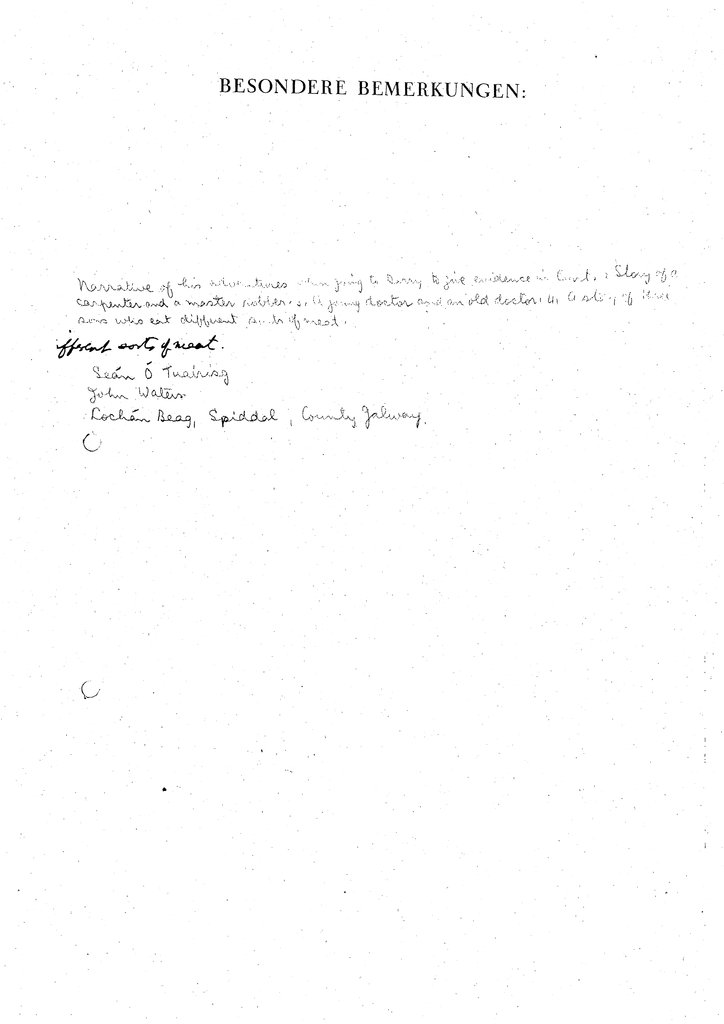 BESONDERE BEMERKUNGEN:
Narrative of his adventures when going to Derry to give evidence in Court. 2 Story of a
carpenter and a master robber. 3. A young doctor and an old doctor. 4. A story of three
sons who eat different sorts of meat.
ifferent sorts of meat.
Seán Ó Tuairisg
John Waters
Lochán Beag, Spiddal, County Galway.